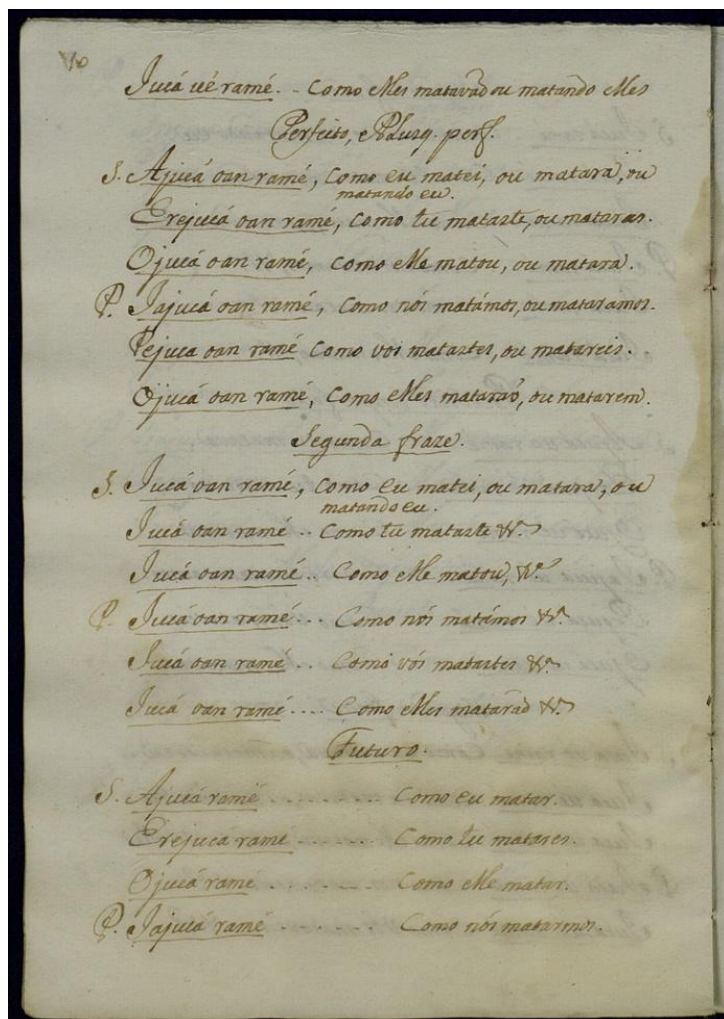 Jucá ué ramé. - Como elles matarão ou matando elles
Perfeito, e Plusq. perf.
S. Ajucá oan ramé, Como eu matei, ou matara, ou
matando eu.
Erejucá oan ramé, Como tu mataste, ou mataras.
Ojucá oan ramé, Como elle matou, ou matara.
P. Jajucá oan ramé, Como nós matámos, ou mataramos.
Pejuca oan ramé Como vos matastes, ou matareis.
Ojucá oan ramé, Como elles mataraõ, ou matarem.
Segunda fraze.
S. Jucá oan ramé, Como eu matei, ou matara, ou
matando eu.
Jucá oan ramé .. Como tu mataste &.ª
Jucá oan ramé .. Como elle matou, &.ª
P. Jucá oan ramé ... Como nós matámos &.ª
Jucá oan ramé .. Como vós matastes &.ª
Jucá oan ramé .... Como elles mataraõ &.ª
Futuro.
S. Ajucá ramé .......... Como eu matar.
Erejucá rame ....... Como tu matares.
Ojucá ramé ....... Como elle matar.
P. Jajucá ramé ....... Como nós matarmos.